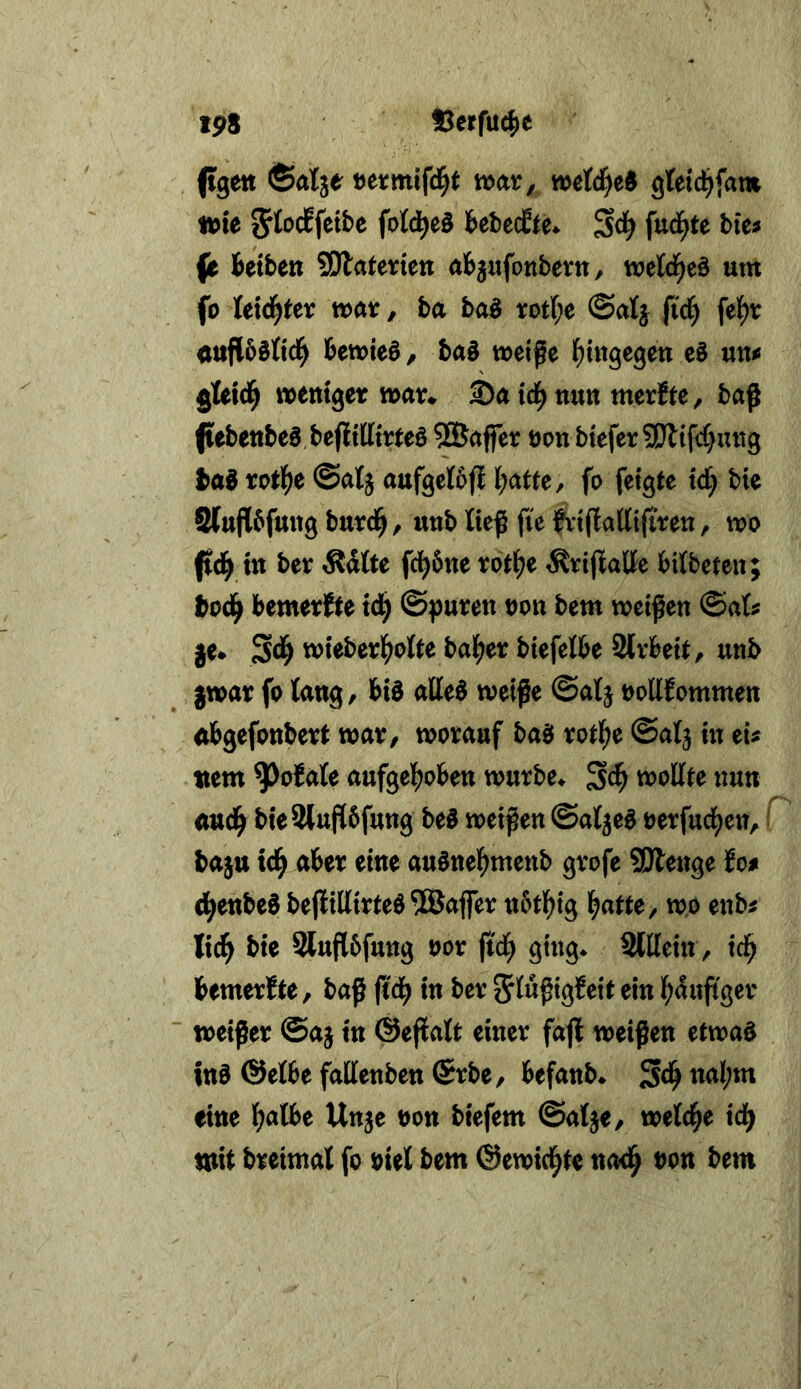 198 Versuche
sigen Salze vermischt war, welches gleichsam
wie Flockseide solches bedeckte. Ich suchte die-
se beiden Materien abzusondern, welches um
so leichter war, da das rothe Salz sich sehr
auflöslich bewies, das weiße hingegen es un-
gleich weniger war. Da ich nun merkte, daß
siedendes destillirtes Wasser von dieser Mischung
das rothe Salz aufgelöst hatte, so seigte ich die
Auflösung durch, und ließ sie kristallisiren, wo
sich in der Kälte schöne rothe Kristalle bildeten;
doch bemerkte ich Spuren von dem weißen Sal-
ze. Ich wiederholte daher dieselbe Arbeit, und
zwar so lang, bis alles weiße Salz vollkommen
abgesondert war, worauf das rothe Salz in ei-
nem Pokale aufgehoben wurde. Ich wollte nun
auch die Auflösung des weißen Salzes versuchen,
dazu ich aber eine ausnehmend grose Menge ko-
chendes destillirtes Wasser nöthig hatte, wo end-
lich die Auflösung vor sich ging. Allein, ich
bemerkte, daß sich in der Flüßigkeit ein häufiger
weißer Saz in Gestalt einer fast weißen etwas
ins Gelbe fallenden Erde, befand. Ich nahm
eine halbe Unze von diesem Salze, welche ich
mit dreimal so viel dem Gewichte nach von dem